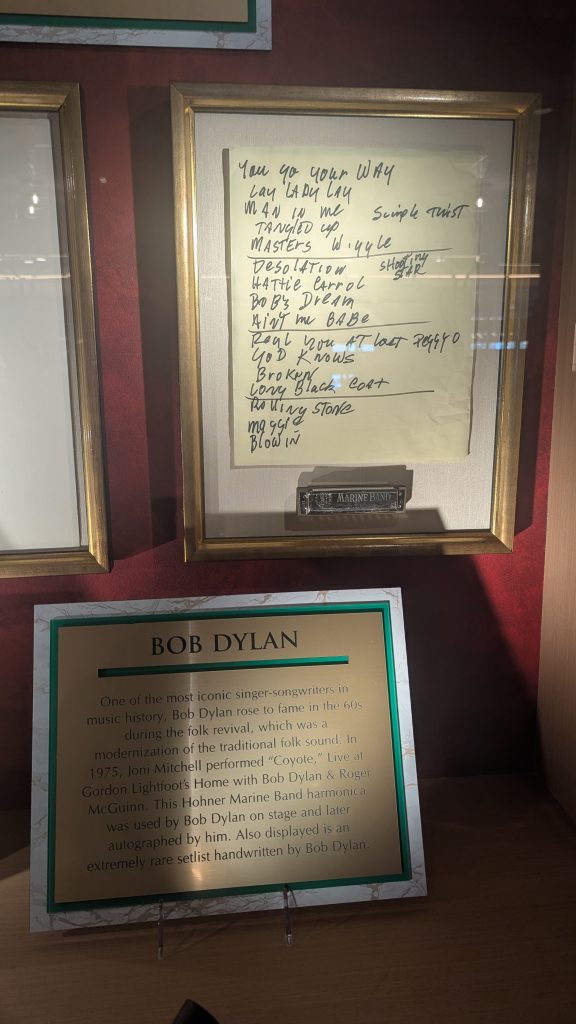 You go your WAY
LAY LADY LAY
MAN IN me
Simple TWIST
TANGLED up
MASTERS Wiggle
Desolation
SHooting
STAR
HATTie Carrol
BOB's Dream
Ain't me BABe
Real You AT Last Peggy O
GOD KNOWS
BroKeN
Long Black COAT
Rolling STONe
maggie
BLOWIN
MARINE BAND
BOB DYLAN
One of the most iconic singer-songwriters in
music history, Bob Dylan rose to fame in the 60s
during the folk revival, which was a
modernization of the traditional folk sound. In
1975, Joni Mitchell performed “Coyote,” Live at
Gordon Lightfoot's Home with Bob Dylan & Roger
McGuinn. This Hohner Marine Band harmonica
was used by Bob Dylan on stage and later
autographed by him. Also displayed is an
extremely rare setlist handwritten by Bob Dylan.